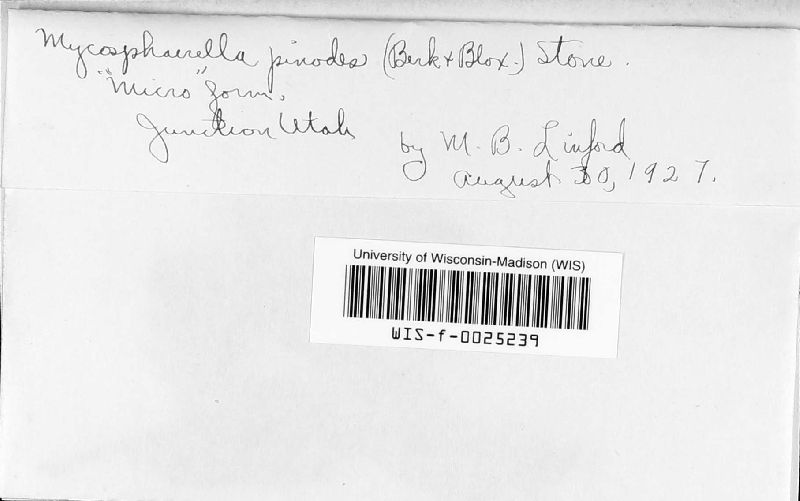 Mycosphaerella pinodes (Berk & Blox.) Stone.
"Micro" form.
Junction Utah
by M. B. Linford
August 30, 1927.
University of Wisconsin-Madison (WIS)
WIS-f-0025239